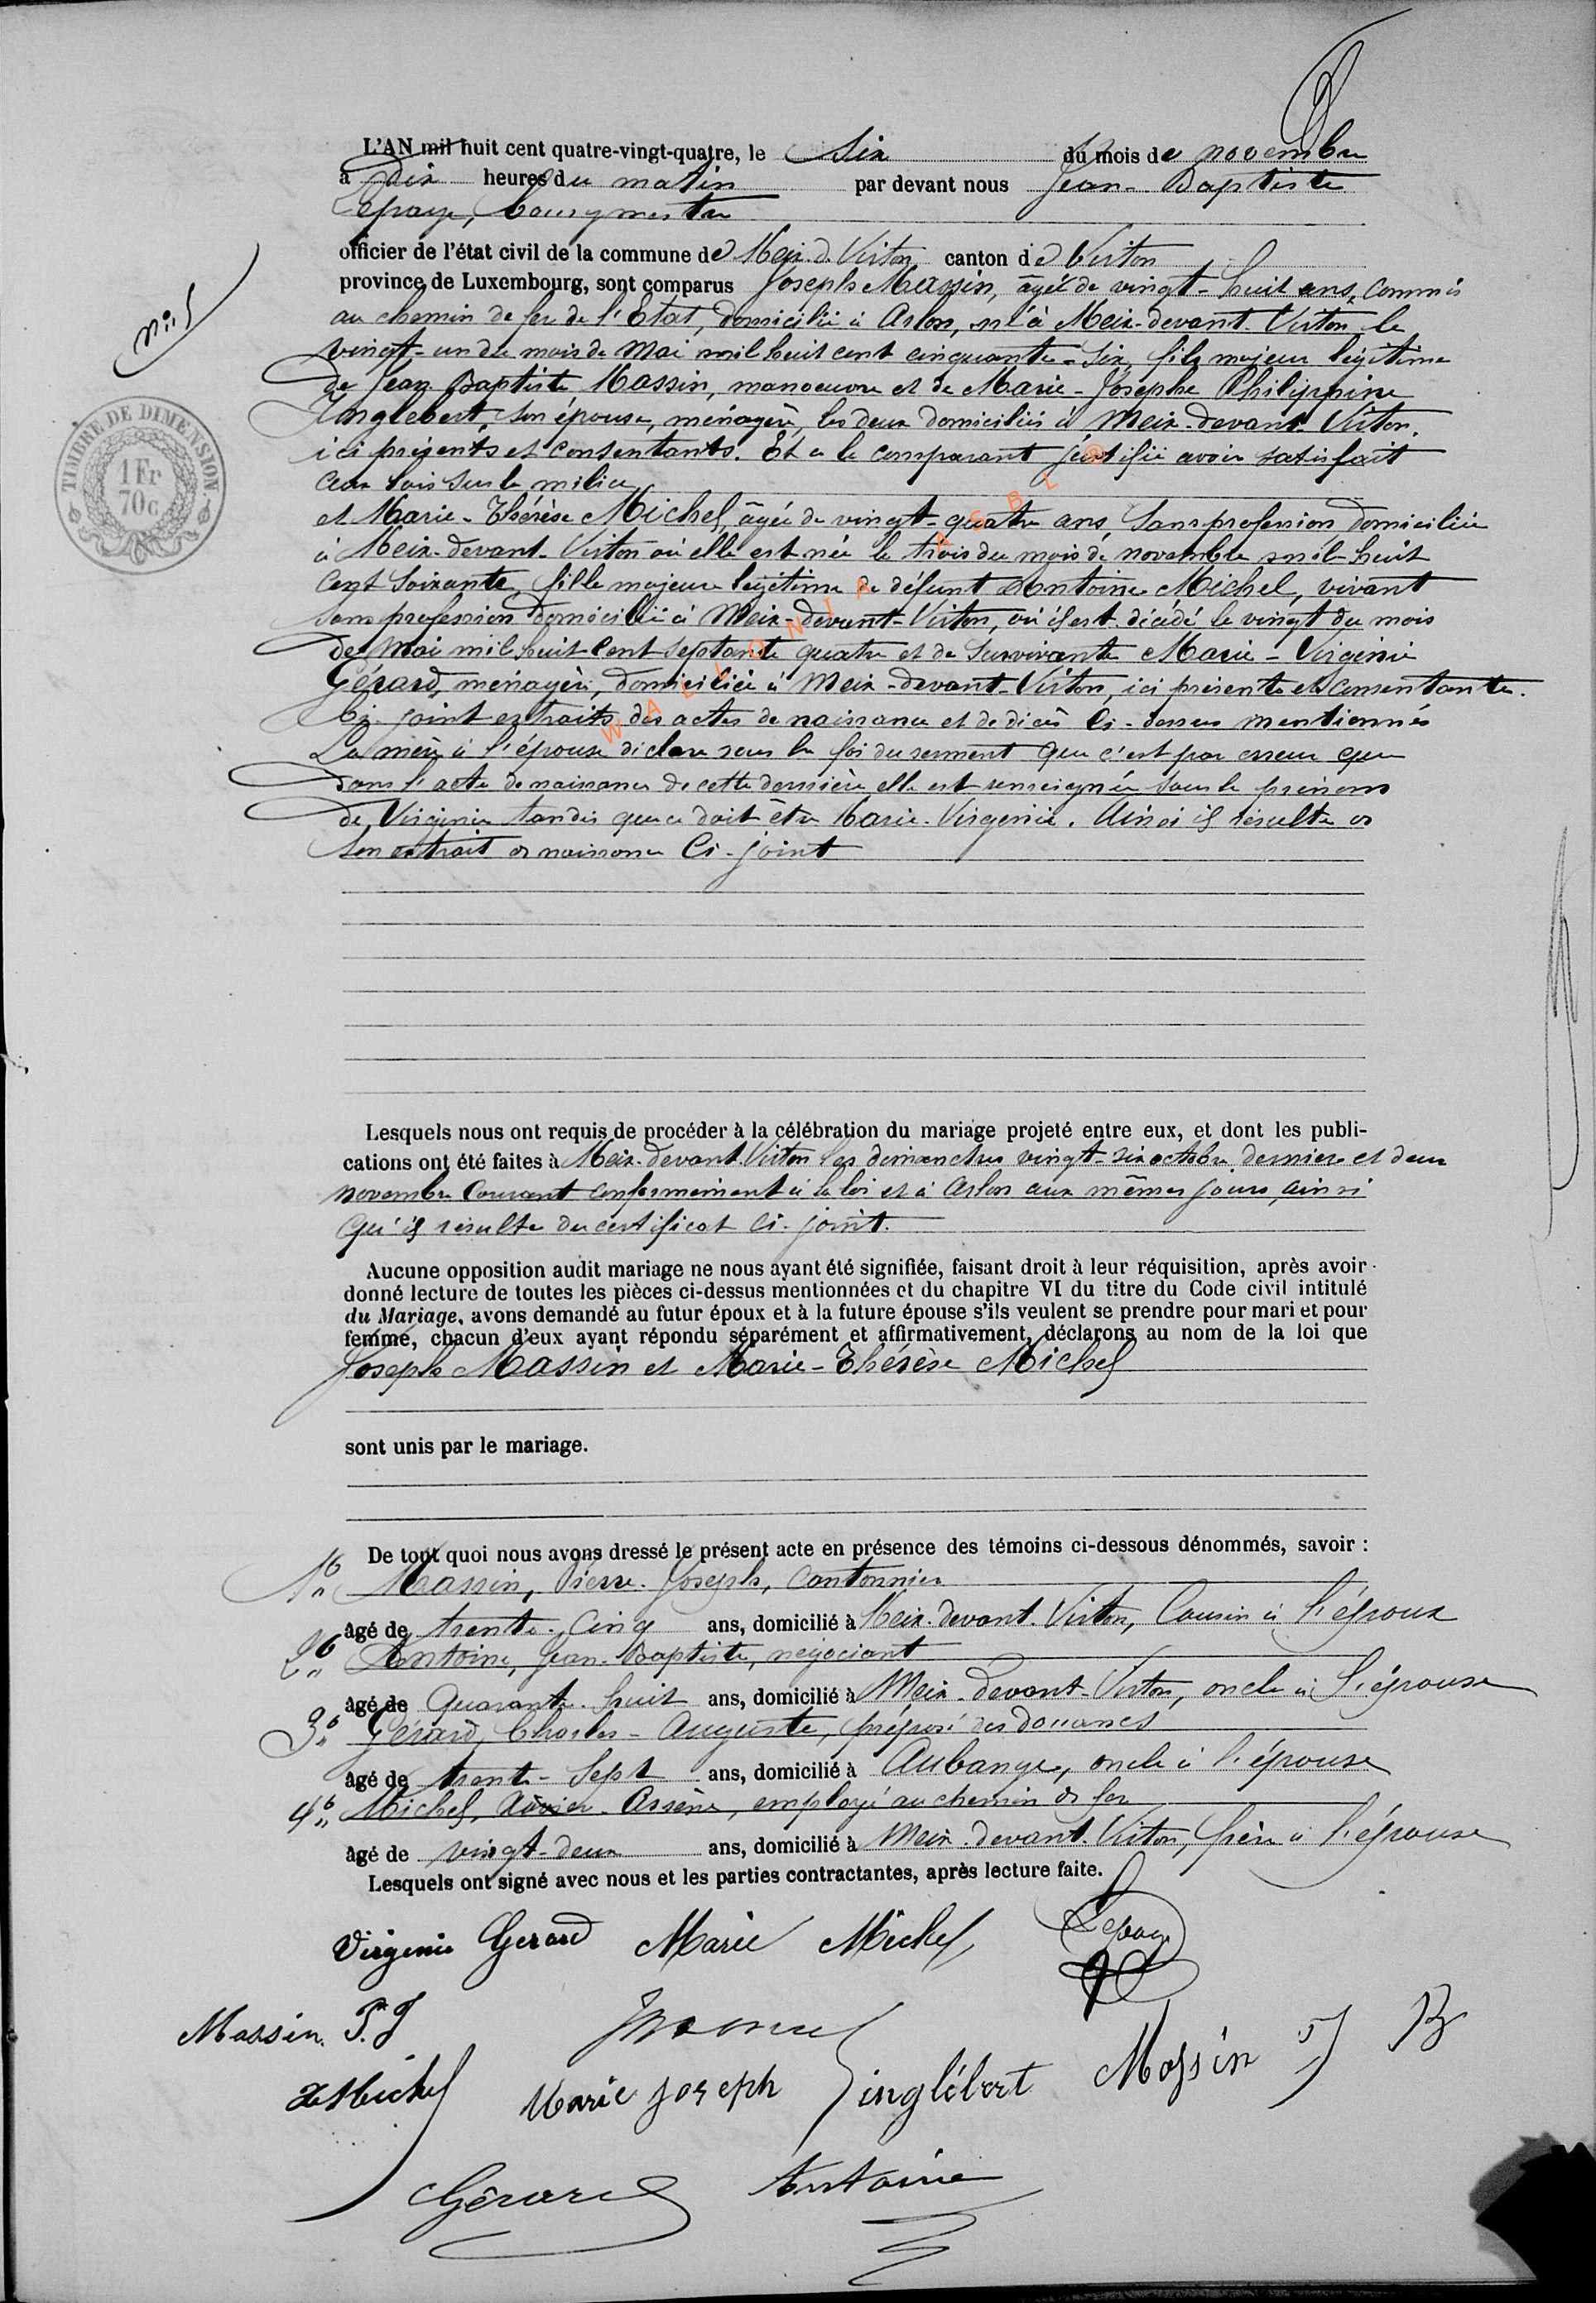 L'AN mil huit cent quatre-vingt-quatre, le Six du mois de novembre
à dix heures du matin par devant nous Jean-Baptiste
Lepage, bourgmestre
officier de l'état civil de la commune de Meix-d.-Virton canton de Virton
province de Luxembourg, sont comparus Joseph Massin, âgé de vingt-huit ans, commis
au chemin de fer de l'Etat, domicilié à Arlon, né à Meix-devant-Virton le
vingt-un du mois de Mai mil huit cent cinquante-six, fils majeur légitime
de Jean Baptiste Massin, manoeuvre et de Marie-Josephe Philippine
Inglebert son épouse, ménagère, les deux domiciliés à Meix-devant-Virton,
ici présents et consentants. Et a le comparant justifié avoir satisfait
aux lois sur la milice
et Marie-Thérèse Michel, âgée de vingt-quatre ans, sans profession, domiciliée
à Meix-devant-Virton où elle est née le trois du mois de novembre mil huit
cent soixante, fille majeure légitime de défunt Antoine Michel, vivant
sans profession domicilié à Meix-devant-Virton, où il est décédé le vingt du mois
de Mai mil huit cent septante quatre et de survivante Marie-Virginie
Gérard, ménagère, domiciliée à Meix-devant-Virton, ici présente et consentante.
Ci-joint extraits des actes de naissance et de décès ci-dessus mentionnés
La mère à l'épouse déclare sous la foi du serment que c'est par erreur que
dans l'acte de naissance de cette dernière elle est renseignée sous le prénom
de Virginie tandis que ce doit être Marie-Virginie. Ainsi il résulte de
son extrait de naissance ci-joint
WALLONIA ASBL ®
nii S
TIMBRE DE DIMENSION
1 Fr
70 c
Lesquels nous ont requis de procéder à la célébration du mariage projeté entre eux, et dont les publi-
cations ont été faites à Meix-devant-Virton les dimanches vingt-six octobre dernier et deux
novembre courant conformément à la loi et à Arlon aux mêmes jours, ainsi
qu'il résulte du certificat ci-joint.
Aucune opposition audit mariage ne nous ayant été signifiée, faisant droit à leur réquisition, après avoir
donné lecture de toutes les pièces ci-dessus mentionnées et du chapitre VI du titre du Code civil intitulé
du Mariage, avons demandé au futur époux et à la future épouse s'ils veulent se prendre pour mari et pour
femme, chacun d'eux ayant répondu séparément et affirmativement, déclarons au nom de la loi que
Joseph Massin et Marie-Thérèse Michel
sont unis par le mariage.
De tout quoi nous avons dressé le présent acte en présence des témoins ci-dessous dénommés, savoir :
1° Massin, Pierre-Joseph, cantonnier
âgé de trente-cinq ans, domicilié à Meix-devant-Virton, cousin à l'époux
2° Antoine, Jean-Baptiste, négociant
âgé de quarante-huit ans, domicilié à Meix-devant-Virton, oncle à l'épouse
3° Gérard, Charles-Auguste, préposé des douanes
âgé de trente-sept ans, domicilié à Aubange, oncle à l'épouse
4° Michel, Xavier-Arsène, employé au chemin de fer
âgé de vingt-deux ans, domicilié à Meix-devant-Virton, frère à l'épouse
Lesquels ont signé avec nous et les parties contractantes, après lecture faite.
Virginie Gerard Marie Michel Lepage
Massin P.J
X Michel Marie Joseph inglébert Massin J B
Gérard Antoine